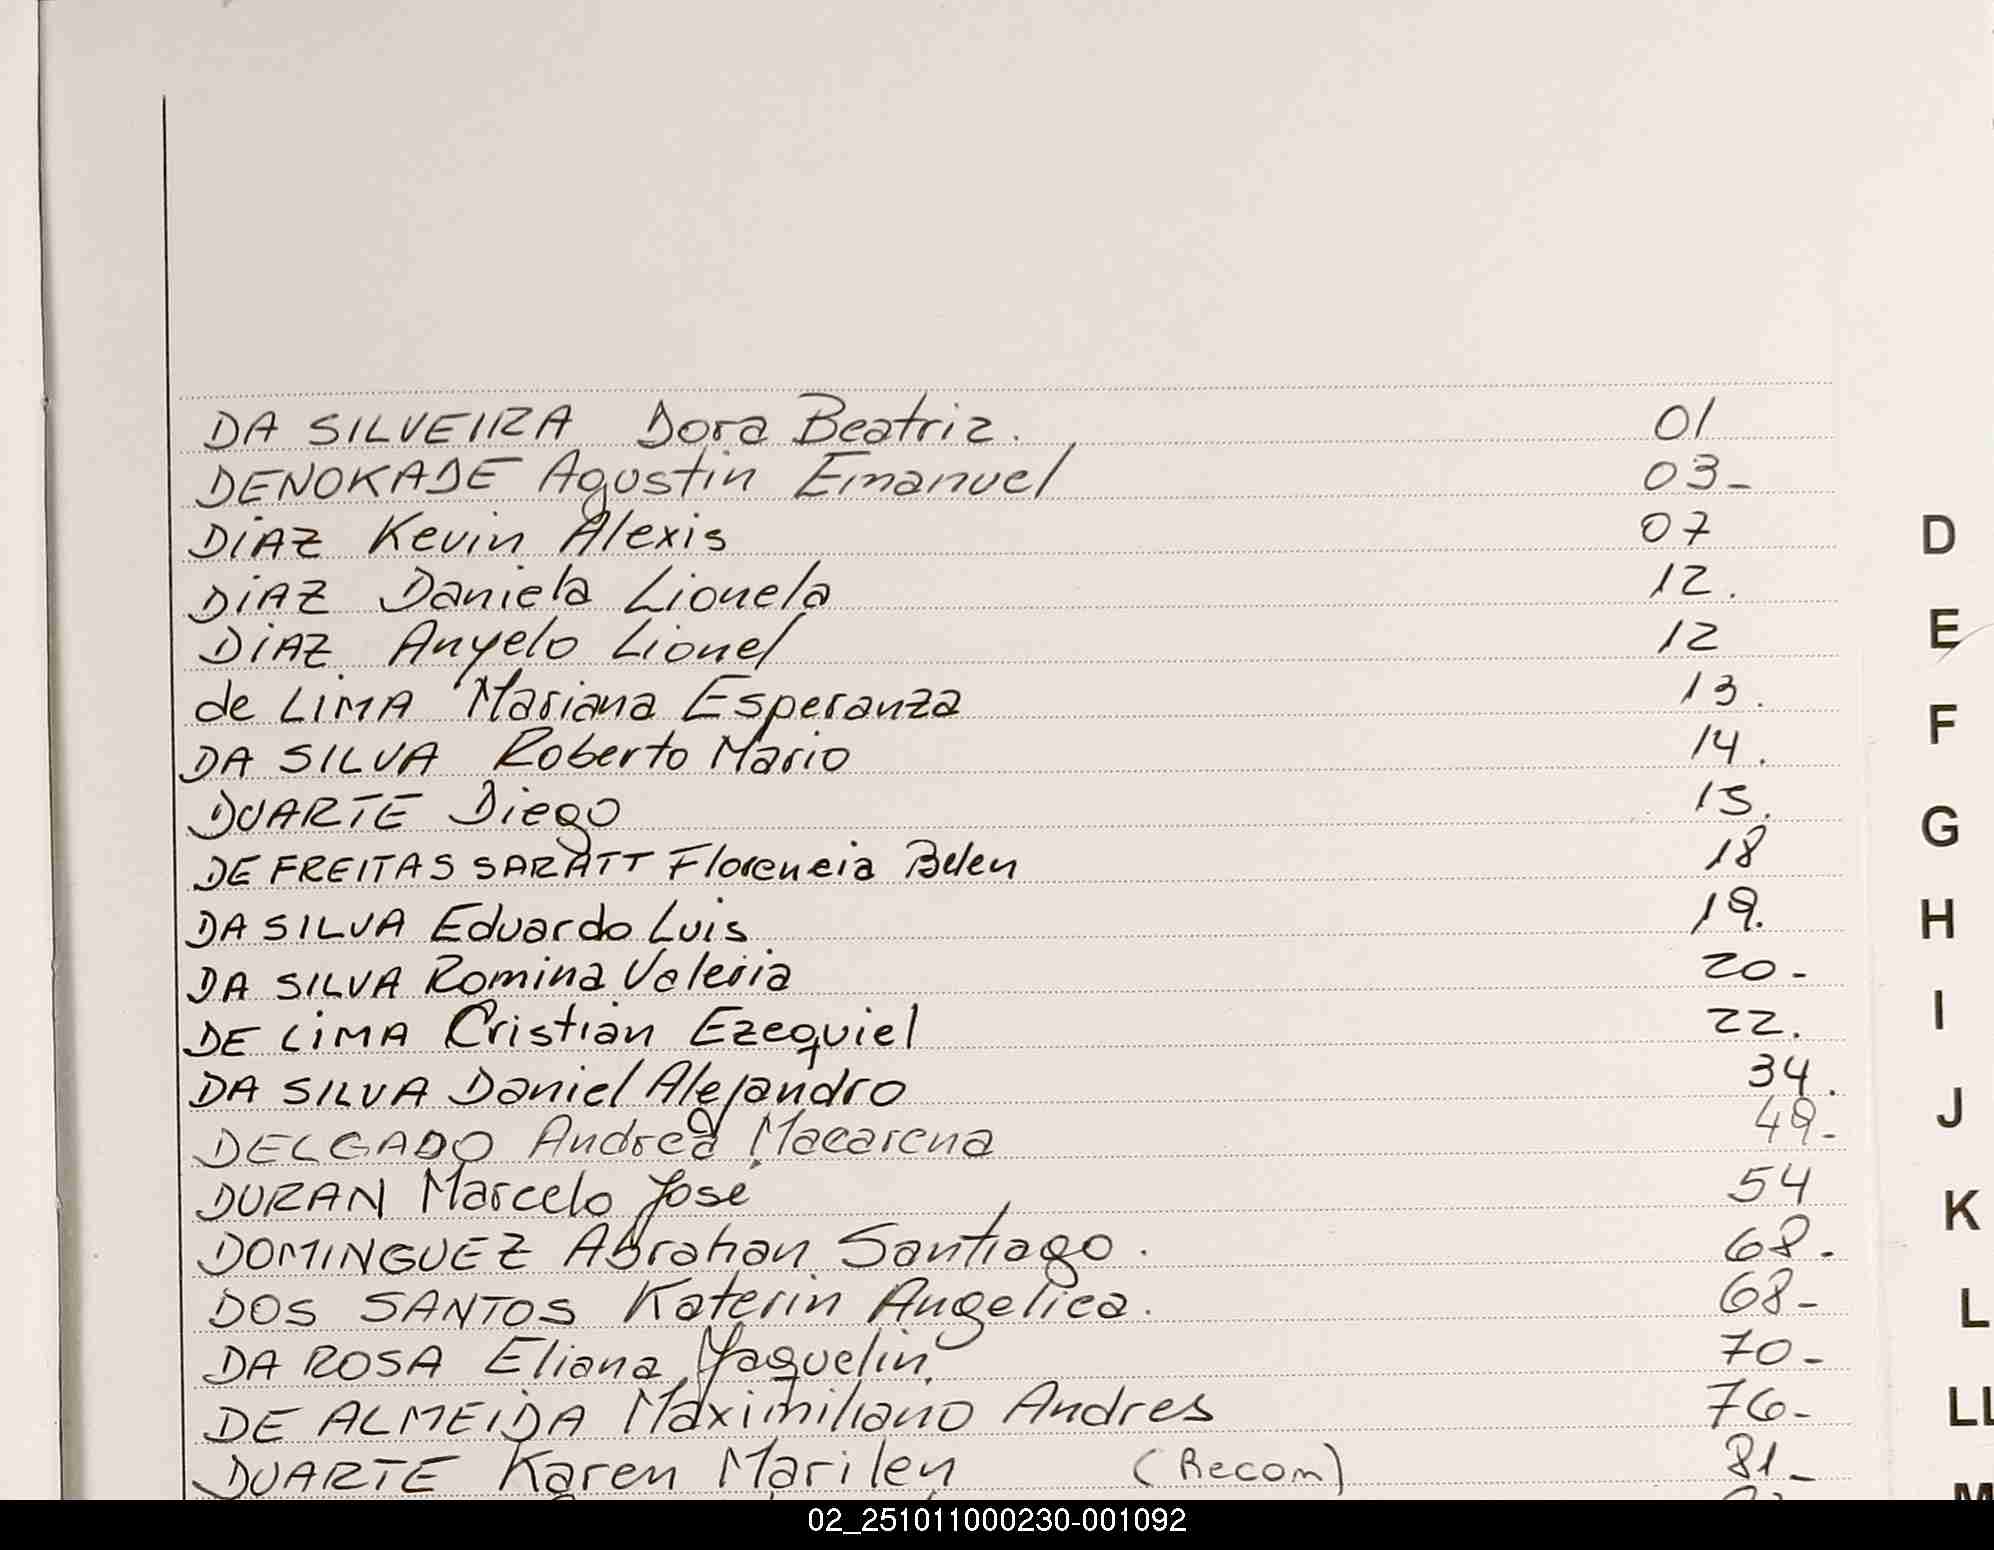 DA SILVEIRA Dora Beatriz. 01
DENOKADE Agustin Emanuel 03-
DiAZ Kevin Alexis 07
DiAZ Daniela Lionela 12.
DiAZ Anyelo Lionel 12
de LiMA Mariana Esperanza 13.
DA SILVA Roberto Mario 14.
DUARTE Diego 15.
DE FREITAS SARATT Florencia Belen 18
DA SILVA Eduardo Luis 19.
DA SILVA Romina Valeria 20-
DE LiMA Cristian Ezequiel 22.
DA SILVA Daniel Alejandro 34.
DELGADO Andrea Macarena 49-
DURAN Marcelo Jose 54
DOMINGUEZ Abrahan Santiago. 68.
DOS SANTOS Katerin Angelica. 68-
DA ROSA Eliana Yaquelin 70-
DE ALMEiDA Maximiliano Andres 76-
DUARTE Karen Marilen (Recom) 81-
D
E
F
G
H
I
J
K
L
LL
M
02_251011000230-001092